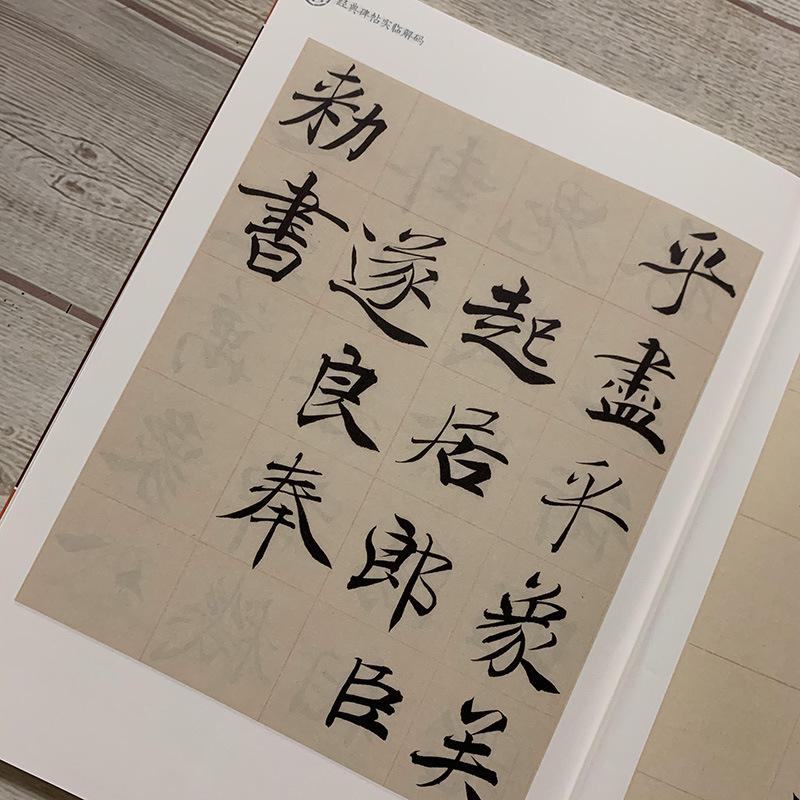 经典碑帖实临解码
乎盡乎象矣
起居郎臣
遂良奉
勅書